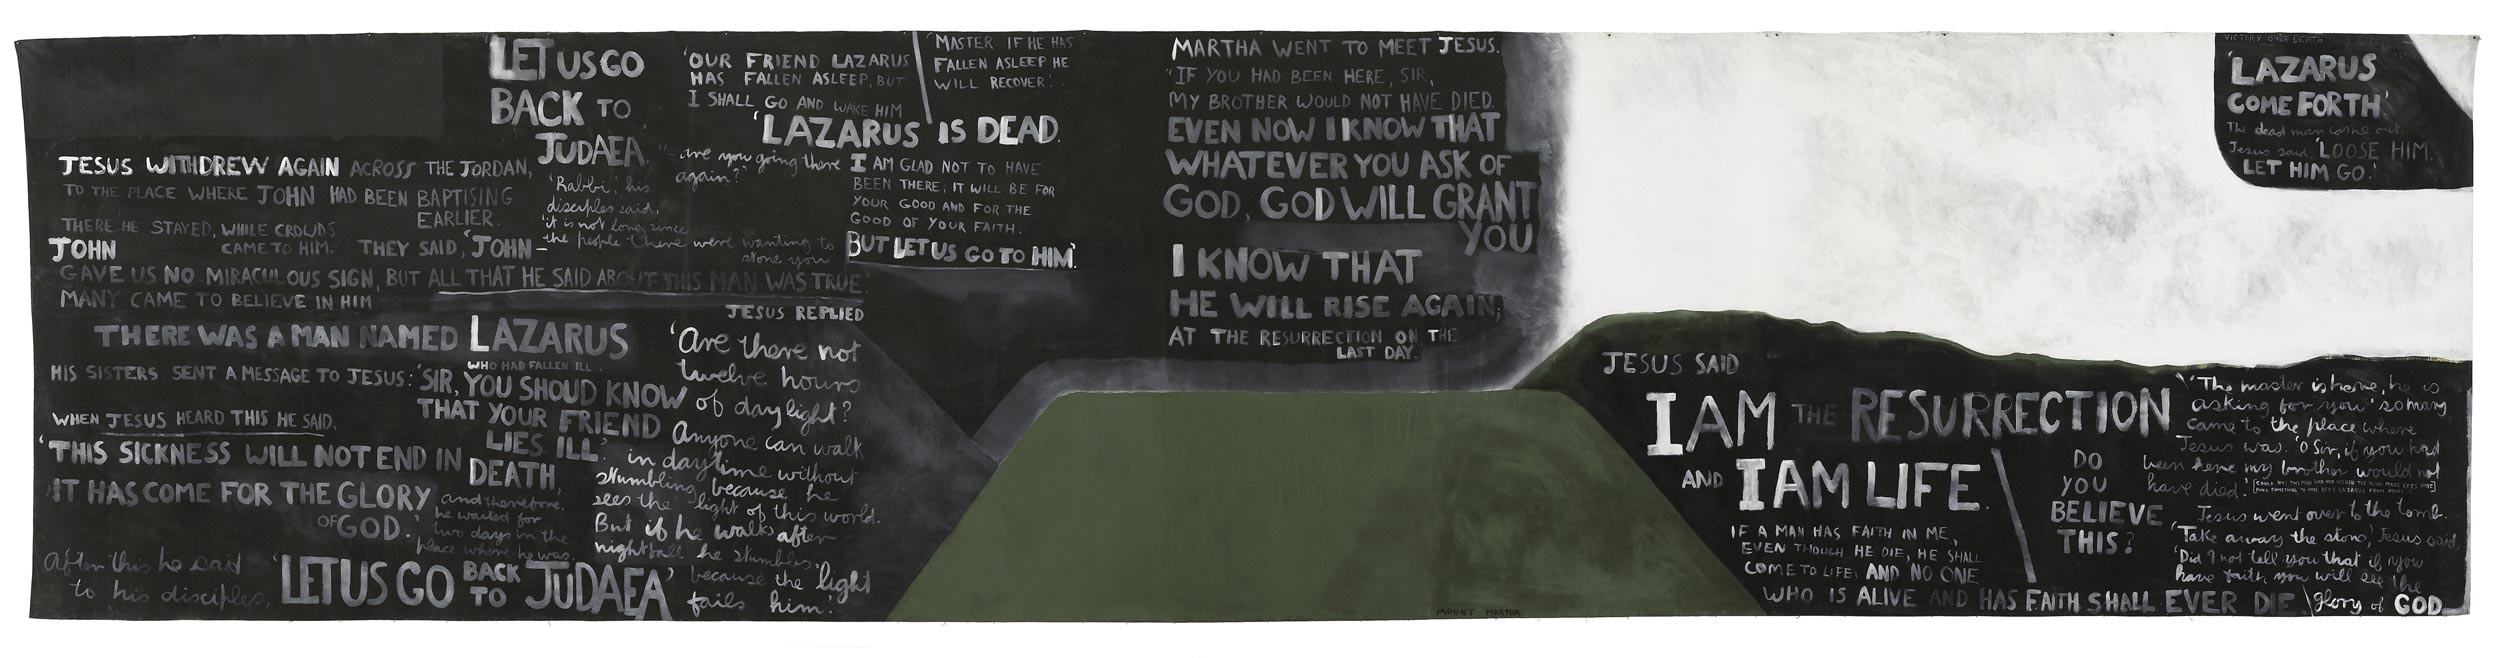 JESUS WITHDREW AGAIN ACROSS THE JORDAN,
TO THE PLACE WHERE JOHN HAD BEEN BAPTISING
EARLIER.
THERE HE STAYED, WHILE CROWDS
CAME TO HIM. THEY SAID, 'JOHN –
JOHN
GAVE US NO MIRACULOUS SIGN, BUT ALL THAT HE SAID ABOUT THIS MAN WAS TRUE.'
MANY CAME TO BELIEVE IN HIM
THERE WAS A MAN NAMED LAZARUS
WHO HAD FALLEN ILL.
HIS SISTERS SENT A MESSAGE TO JESUS: 'SIR, YOU SHOUD KNOW
THAT YOUR FRIEND
LIES ILL.'
WHEN JESUS HEARD THIS HE SAID,
'THIS SICKNESS WILL NOT END IN
DEATH,
IT HAS COME FOR THE GLORY
OF GOD.'
and therefore,
he waited for
two days in the
place where he was.
After this he said
to his disciples,
'LET US GO BACK TO JUDAEA'
'LET US GO
BACK TO
JUDAEA.'
'Rabbi', his
disciples said,
'it is not long since
the people there were wanting to
stone you
– are you going there
again?'
JESUS REPLIED
'Are there not
twelve hours
of daylight?
Anyone can walk
in daytime without
stumbling because he
sees the light of this world.
But if he walks after
nightfall he stumbles
because the light
fails him.'
'OUR FRIEND LAZARUS
HAS FALLEN ASLEEP, BUT
I SHALL GO AND WAKE HIM
'MASTER IF HE HAS
FALLEN ASLEEP HE
WILL RECOVER.'
'LAZARUS IS DEAD.
I AM GLAD NOT TO HAVE
BEEN THERE; IT WILL BE FOR
YOUR GOOD AND FOR THE
GOOD OF YOUR FAITH.
BUT LET US GO TO HIM.'
MARTHA WENT TO MEET JESUS.
"IF YOU HAD BEEN HERE, SIR,
MY BROTHER WOULD NOT HAVE DIED.
EVEN NOW I KNOW THAT
WHATEVER YOU ASK OF
GOD, GOD WILL GRANT
YOU
I KNOW THAT
HE WILL RISE AGAIN;
AT THE RESURRECTION ON THE
LAST DAY.'
MOUNT MARTHA.
JESUS SAID
I AM THE RESURRECTION
AND I AM LIFE.
IF A MAN HAS FAITH IN ME,
EVEN THOUGH HE DIE, HE SHALL
COME TO LIFE; AND NO ONE
WHO IS ALIVE AND HAS FAITH SHALL EVER DIE.
DO
YOU
BELIEVE
THIS?
'The master is here, he is
asking for you' so mary
came to the place where
Jesus was. 'O Sir, if you had
been here my brother would not
have died.'
Jesus went over to the tomb.
'Take away the stone,' Jesus said,
'Did I not tell you that if you
have faith you will see the
glory of GOD
VICTORY OVER DEATH
'LAZARUS
COME FORTH'
The dead man came out.
Jesus said, 'LOOSE HIM.
LET HIM GO.'